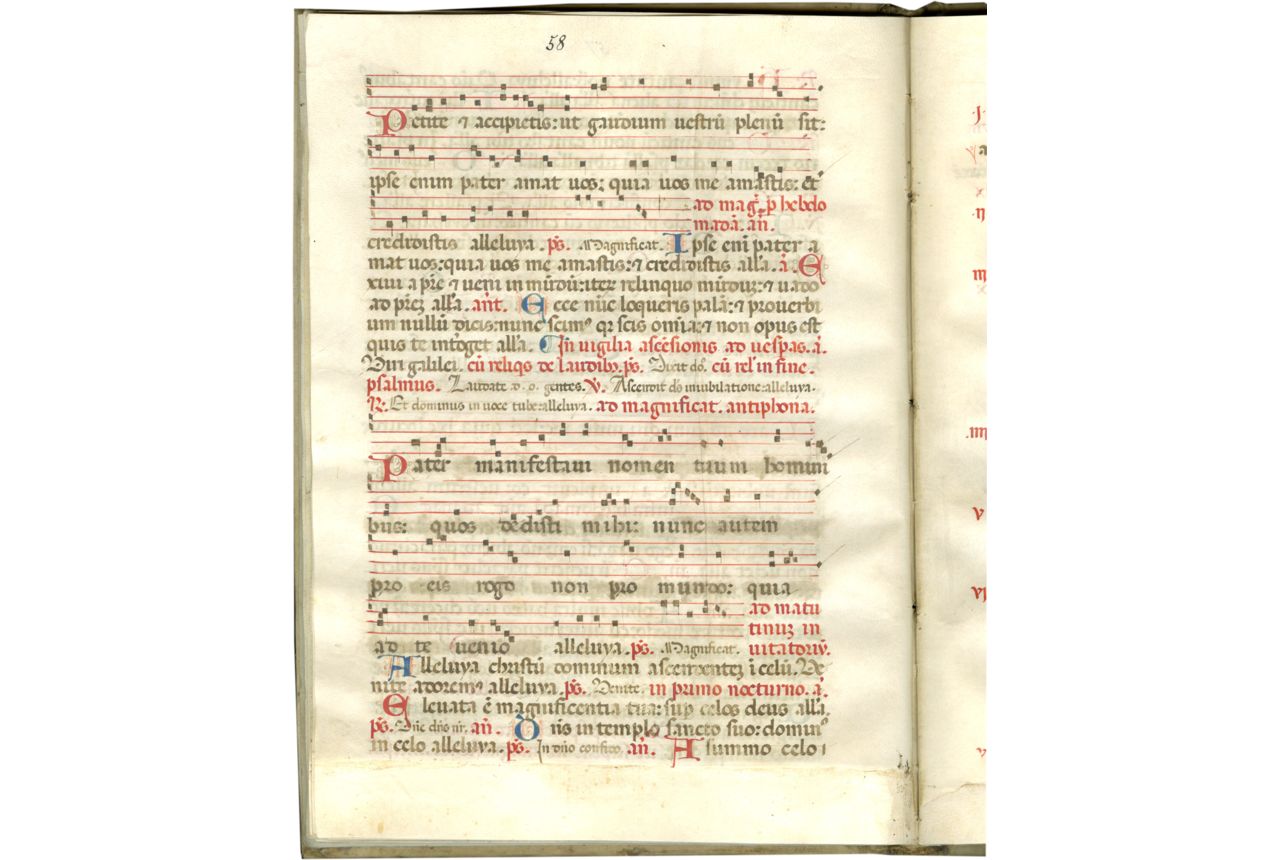 58
Petite ⁊ accipietis: ut gaudium uestrū plenū sit:
ipse enim pater amat uos: quia uos me amastis: et
ad mag̃. p hebdo
madā. añ.
credidistis alleluya. ps. Magnificat. Ipse eni pater a
mat uos: quia uos me amastis: ⁊ credidistis alla. a. E
xiui a pre ⁊ ueni in mūdū: iteꝝ relinquo mūdūꝫ: ⁊ uado
ad prēꝫ alla. ant. Ecce nūc loqueris palā: ⁊ prouerbi
um nullū dicis: nunc scimꝰ qꝛ scis omīa: ⁊ non opus est
quis te intoget alla. In uigilia ascēsionis ad uesp̄as. a.
Uiri galilei. cū reliqs de laudibꝫ. ps. Dixit dō. cū rel' in fine.
psalmus. Laudate d. o. gentes. v. Ascendit dō iniubilatione alleluya.
R. Et dominus in uoce tube alleluya. ad magnificat. antiphona.
Pater manifestaui nomen tuum homini
bus: quos dedisti mihi: nunc autem
pro eis rogo non pro mundo: quia
ad matu
tinuꝫ in
ad te uenio alleluya. ps. Magnificat. uitatoriū.
Alleluya christū dominum ascendenteꝫ i celū. Ve
nite adoremꝰ alleluya. ps. Venite. in primo nocturno. a.
Eleuata ē magnificentia tua: sup celos deus alla.
ps. Dñe dñs nr. añ. Dñs in templo sancto suo: dominꝰ
in celo alleluya. ps. In dño confido. añ. A summo celo